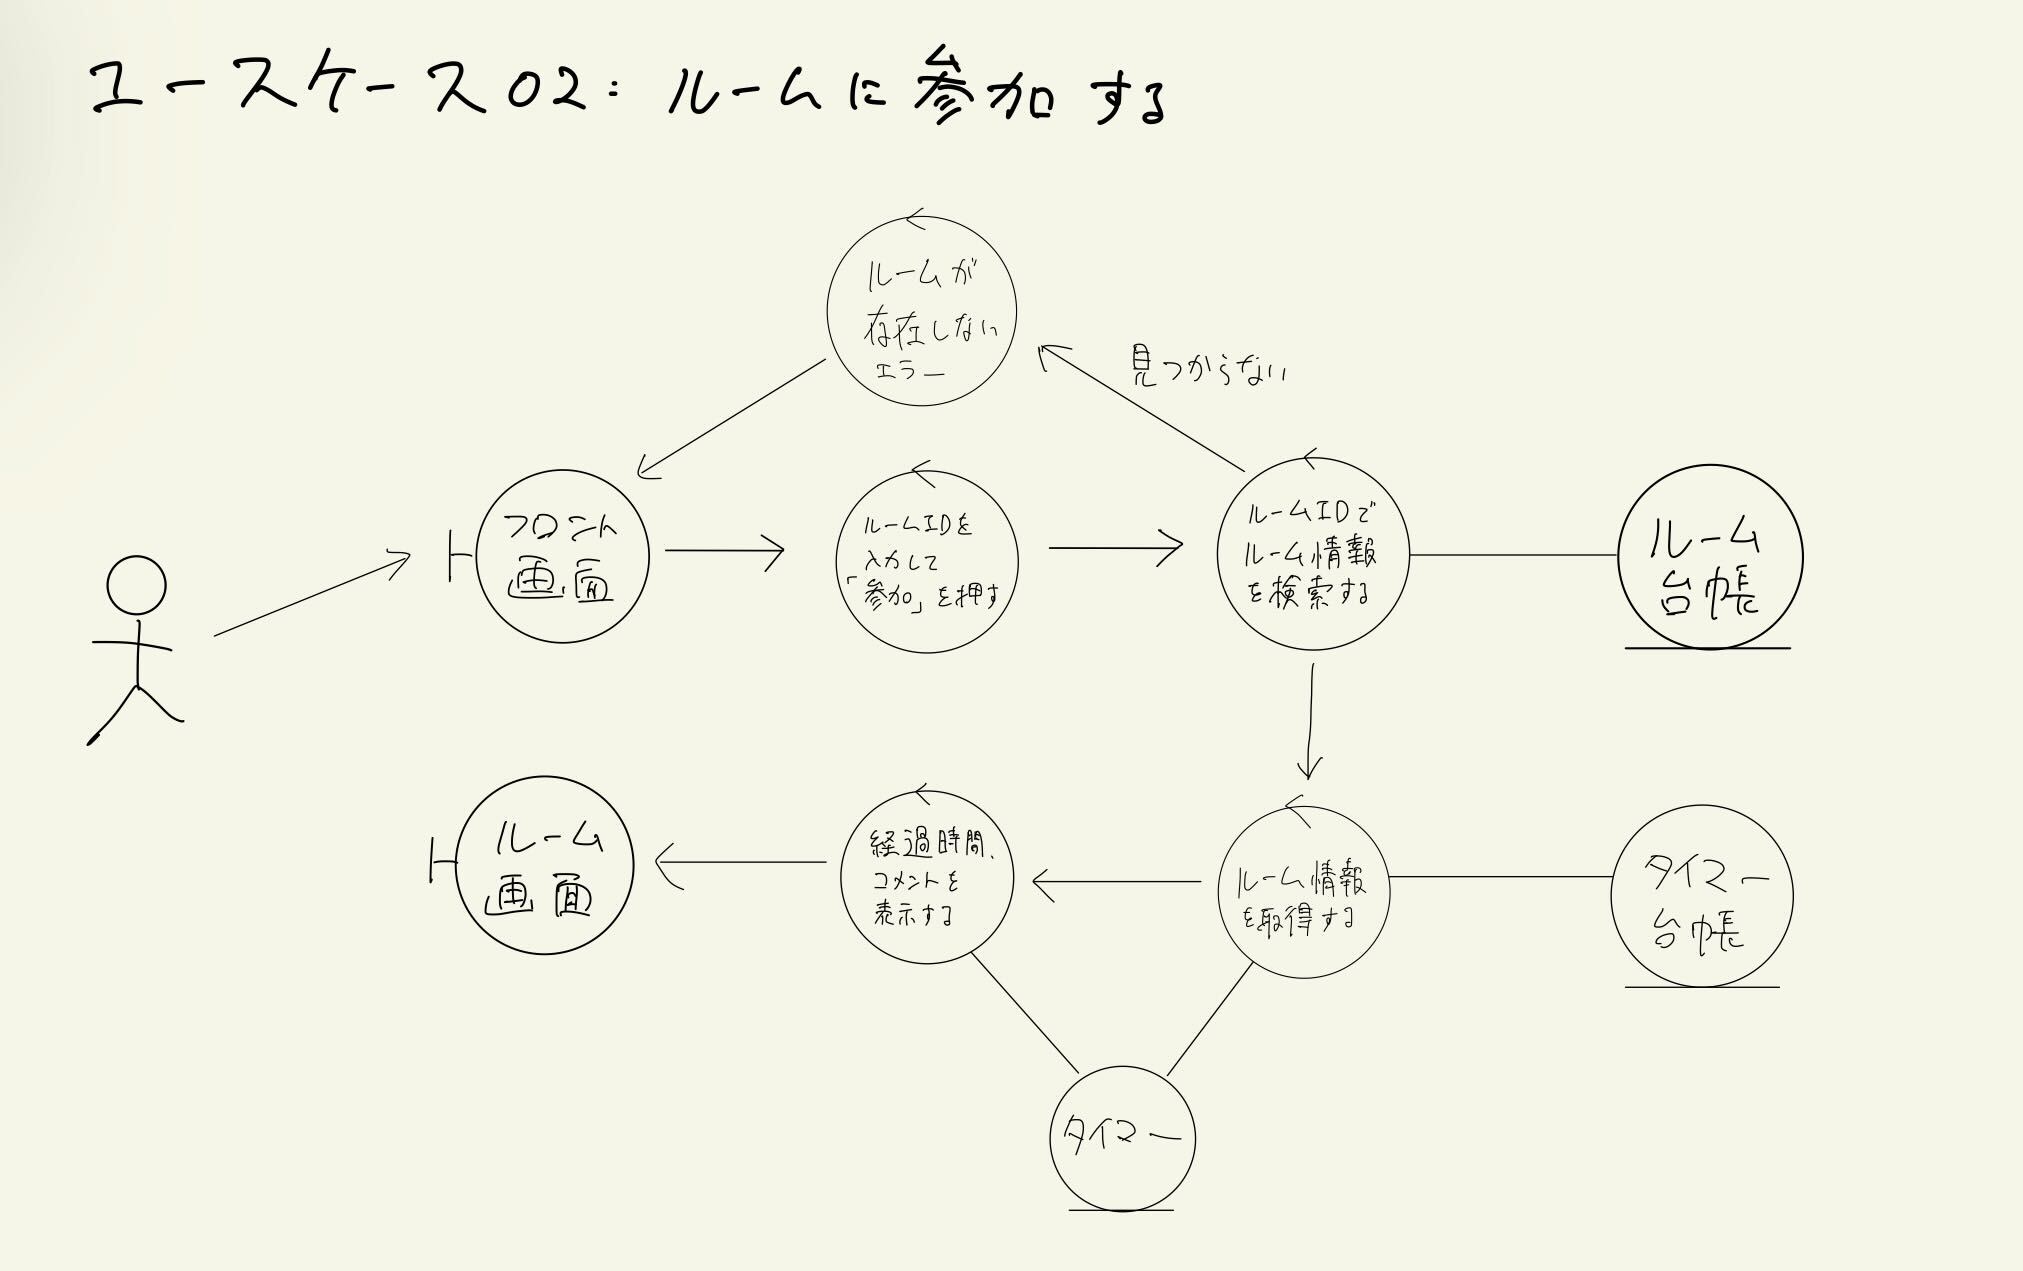 ユースケース02：ルームに参加する
ルームが
存在しない
エラー
見つからない
フロント
画面
ルームIDを
入力して
「参加」を押す
ルームIDで
ルーム情報
を検索する
ルーム
台帳
ルーム
画面
経過時間、
コメントを
表示する
ルーム情報
を取得する
タイマー
台帳
タイマー